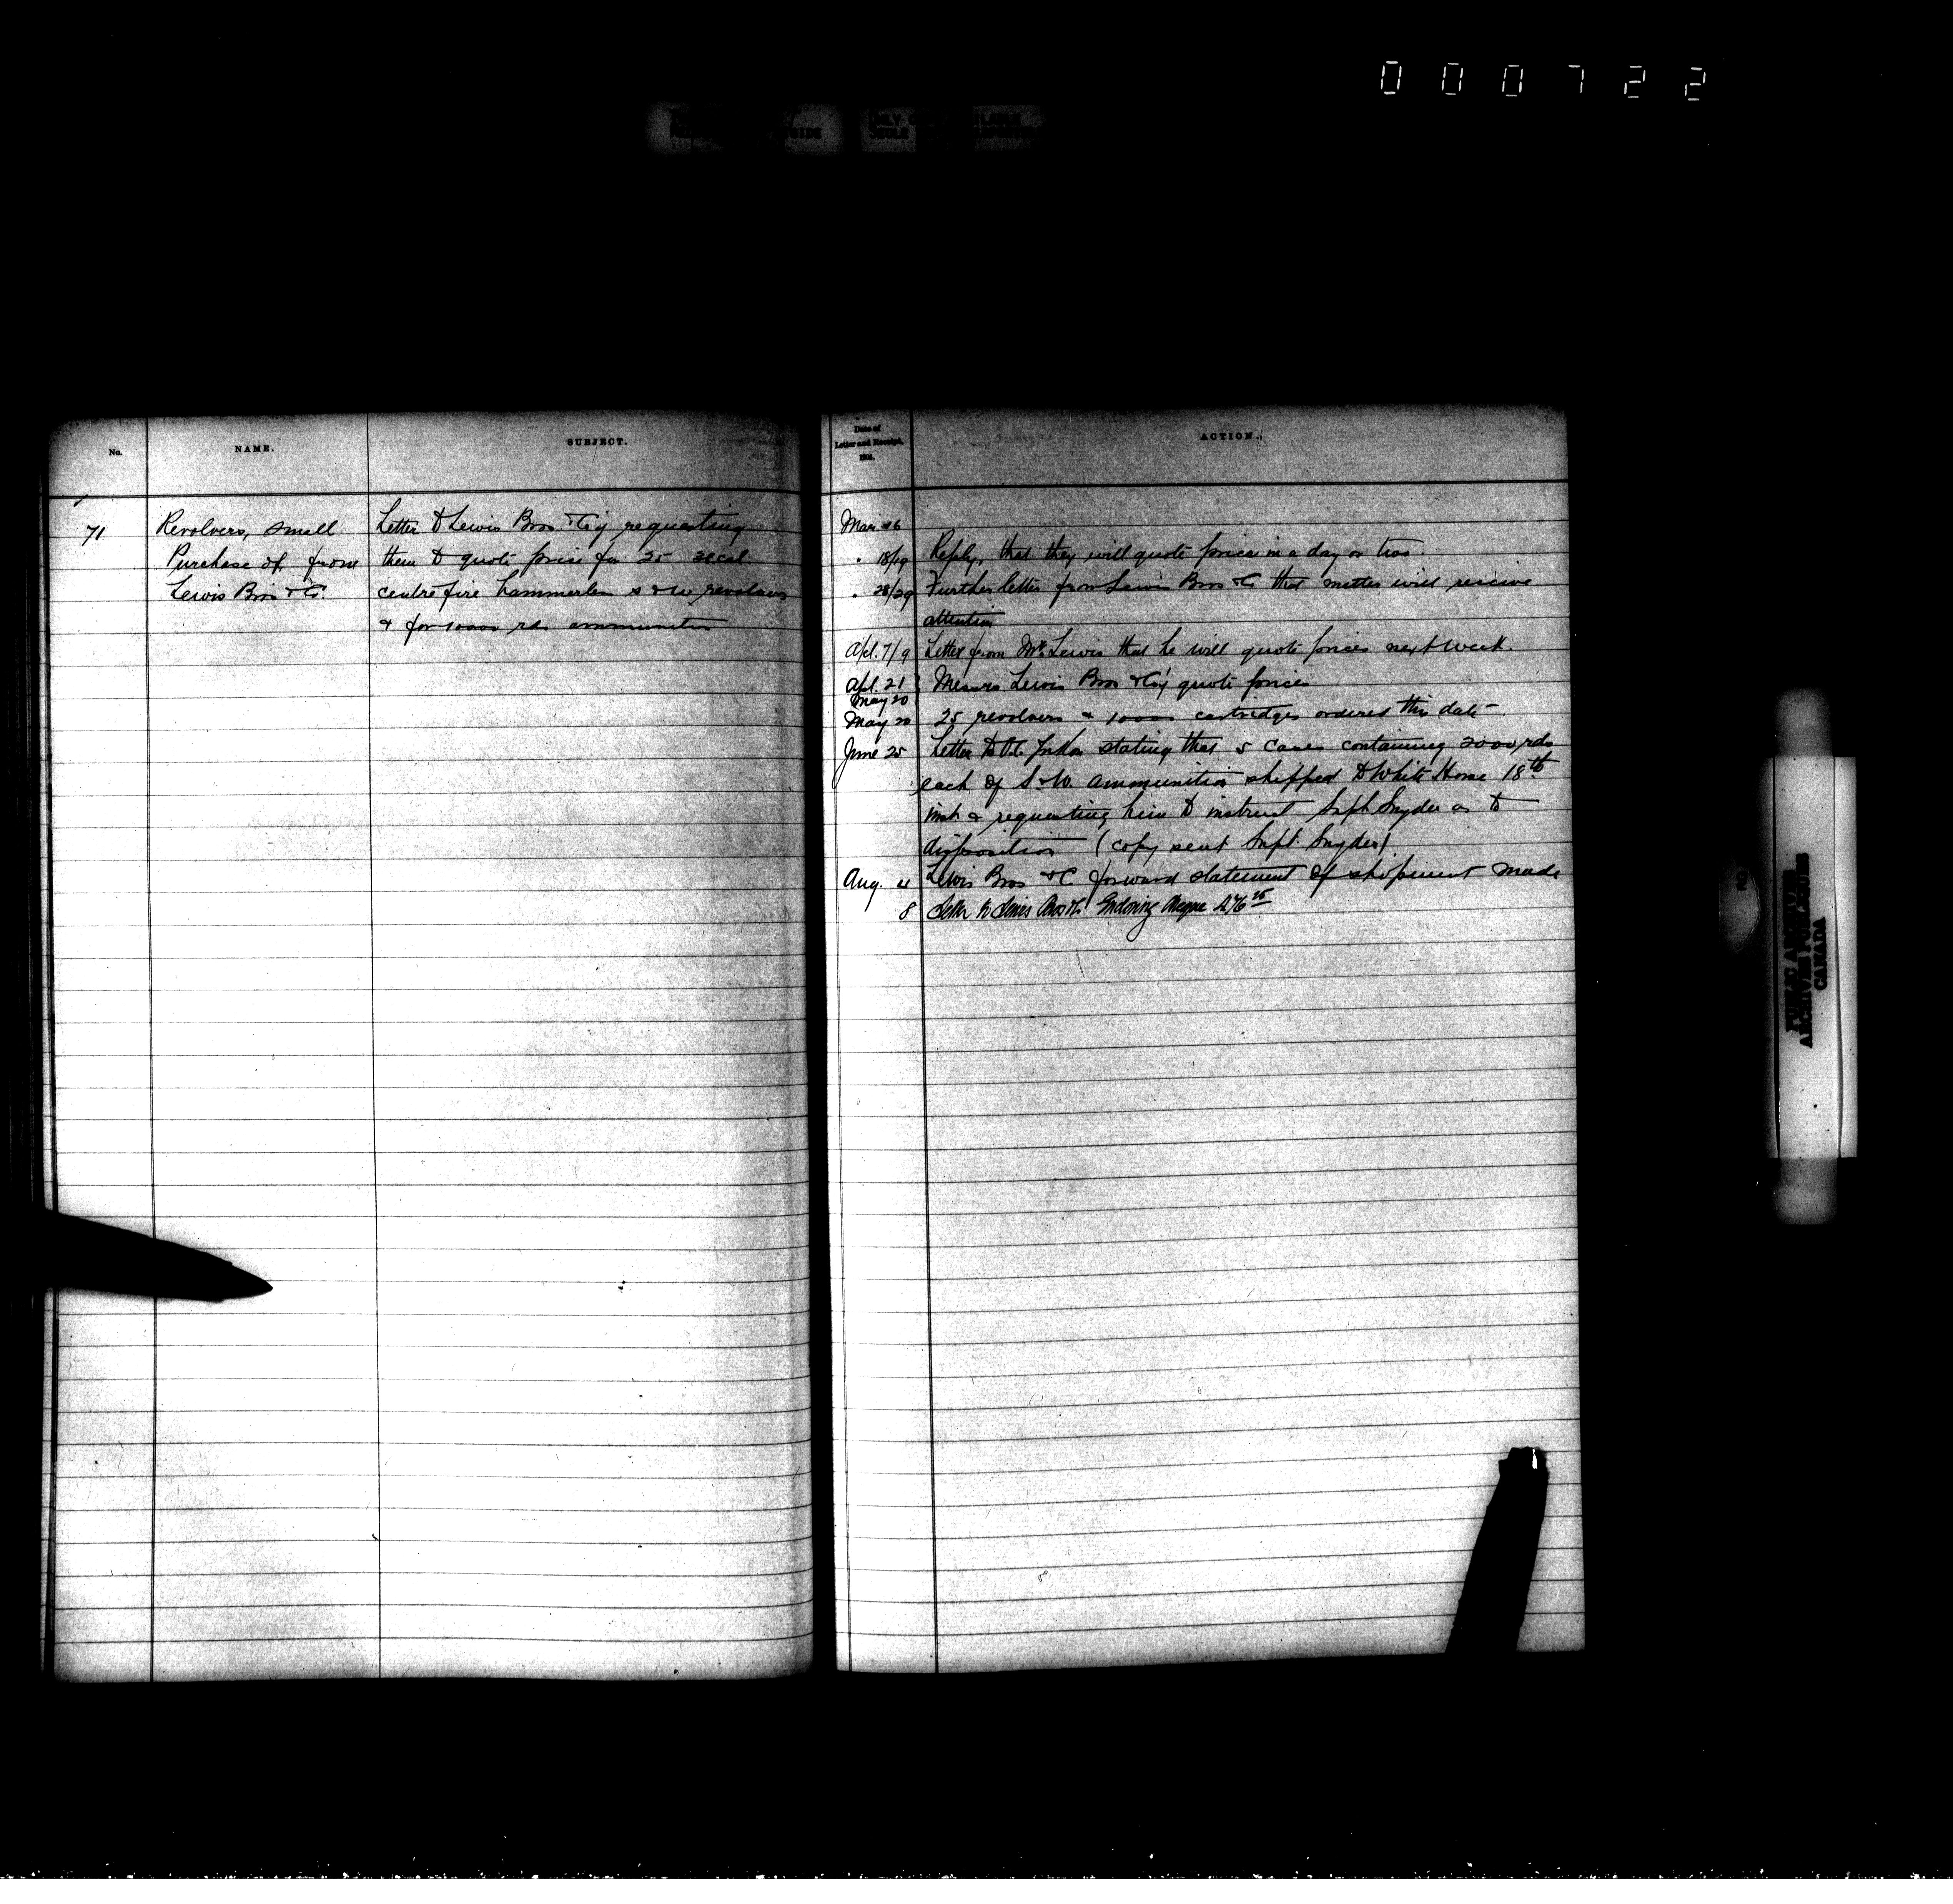 000722
No.
NAME.
SUBJECT.
71
Revolvers, small
Purchase of, from
Lewis Bros & Co.
Letter to Lewis Bros & Co'y requesting
them to quote price for 25 38 cal
centre fire hammerless S & W revolvers
& for 10000 rds ammunition
Date of
Letter and Receipt,
ACTION.
Mar. 16
" 18/19 Reply, that they will quote price in a day or two
" 28/29 Further letter from Lewis Bros & Co that matter will receive
attention
Apl. 7/9 Letter from Mr. Lewis that he will quote prices next week.
Apl. 21 Messrs Lewis Bros & Co'y quote prices
May 20
May 20 25 revolvers & 10000 cartridges ordered this date
June 25 Letter to O.C. stating that 5 cases containing 2000 rds
each of S. & W. ammunition shipped to White Horse 18th
inst. & requesting him to instruct Supt Snyder as to
disposition (copy sent Supt. Snyder)
Aug. 4 Lewis Bros & Co forward statement of shipment made
8 Letter to Lewis Bros & Co Enclosing cheque
PUBLIC ARCHIVES
ARCHIVES PUBLIQUES
CANADA